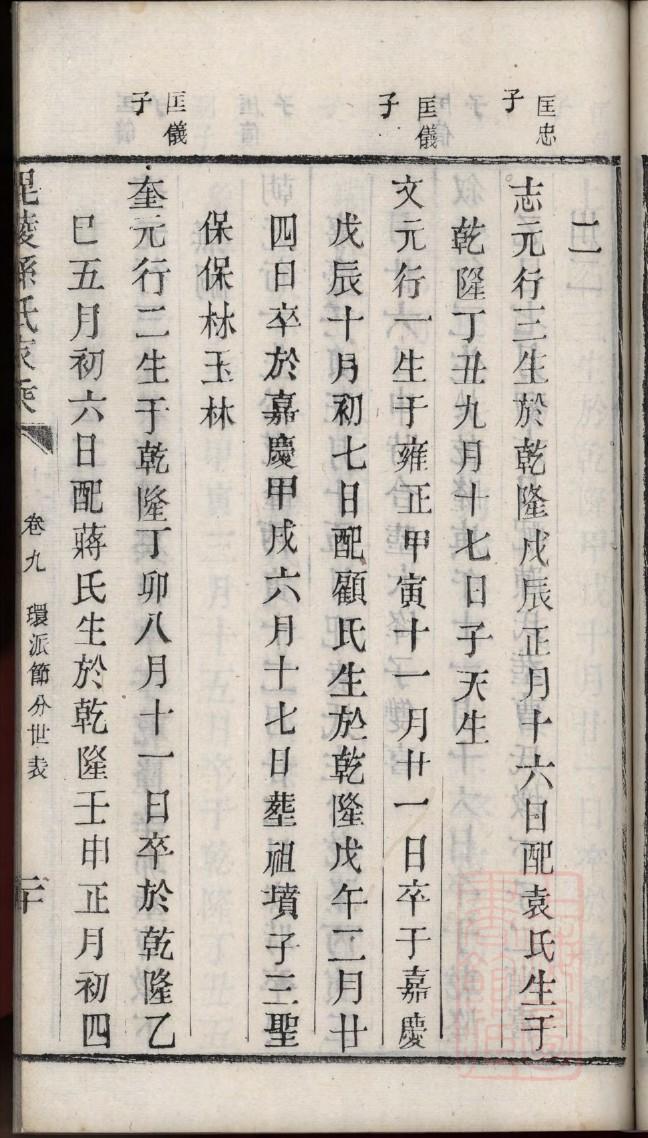 匡忠
子
二
志元行三生於乾隆戊辰正月十六日配袁氏生于
乾隆丁丑九月十七日子天生
匡儀
子
文元行一生于雍正甲寅十一月廿一日卒于嘉慶
戊辰十月初七日配顧氏生於乾隆戊午二月廿
四日卒於嘉慶甲戌六月十七日塟祖墳子三聖
保保林玉林
匡儀
子
奎元行二生于乾隆丁卯八月十一日卒於乾隆乙
巳五月初六日配蔣氏生於乾隆壬申正月初四
毘陵孫氏家乘
卷九
環派節分世表